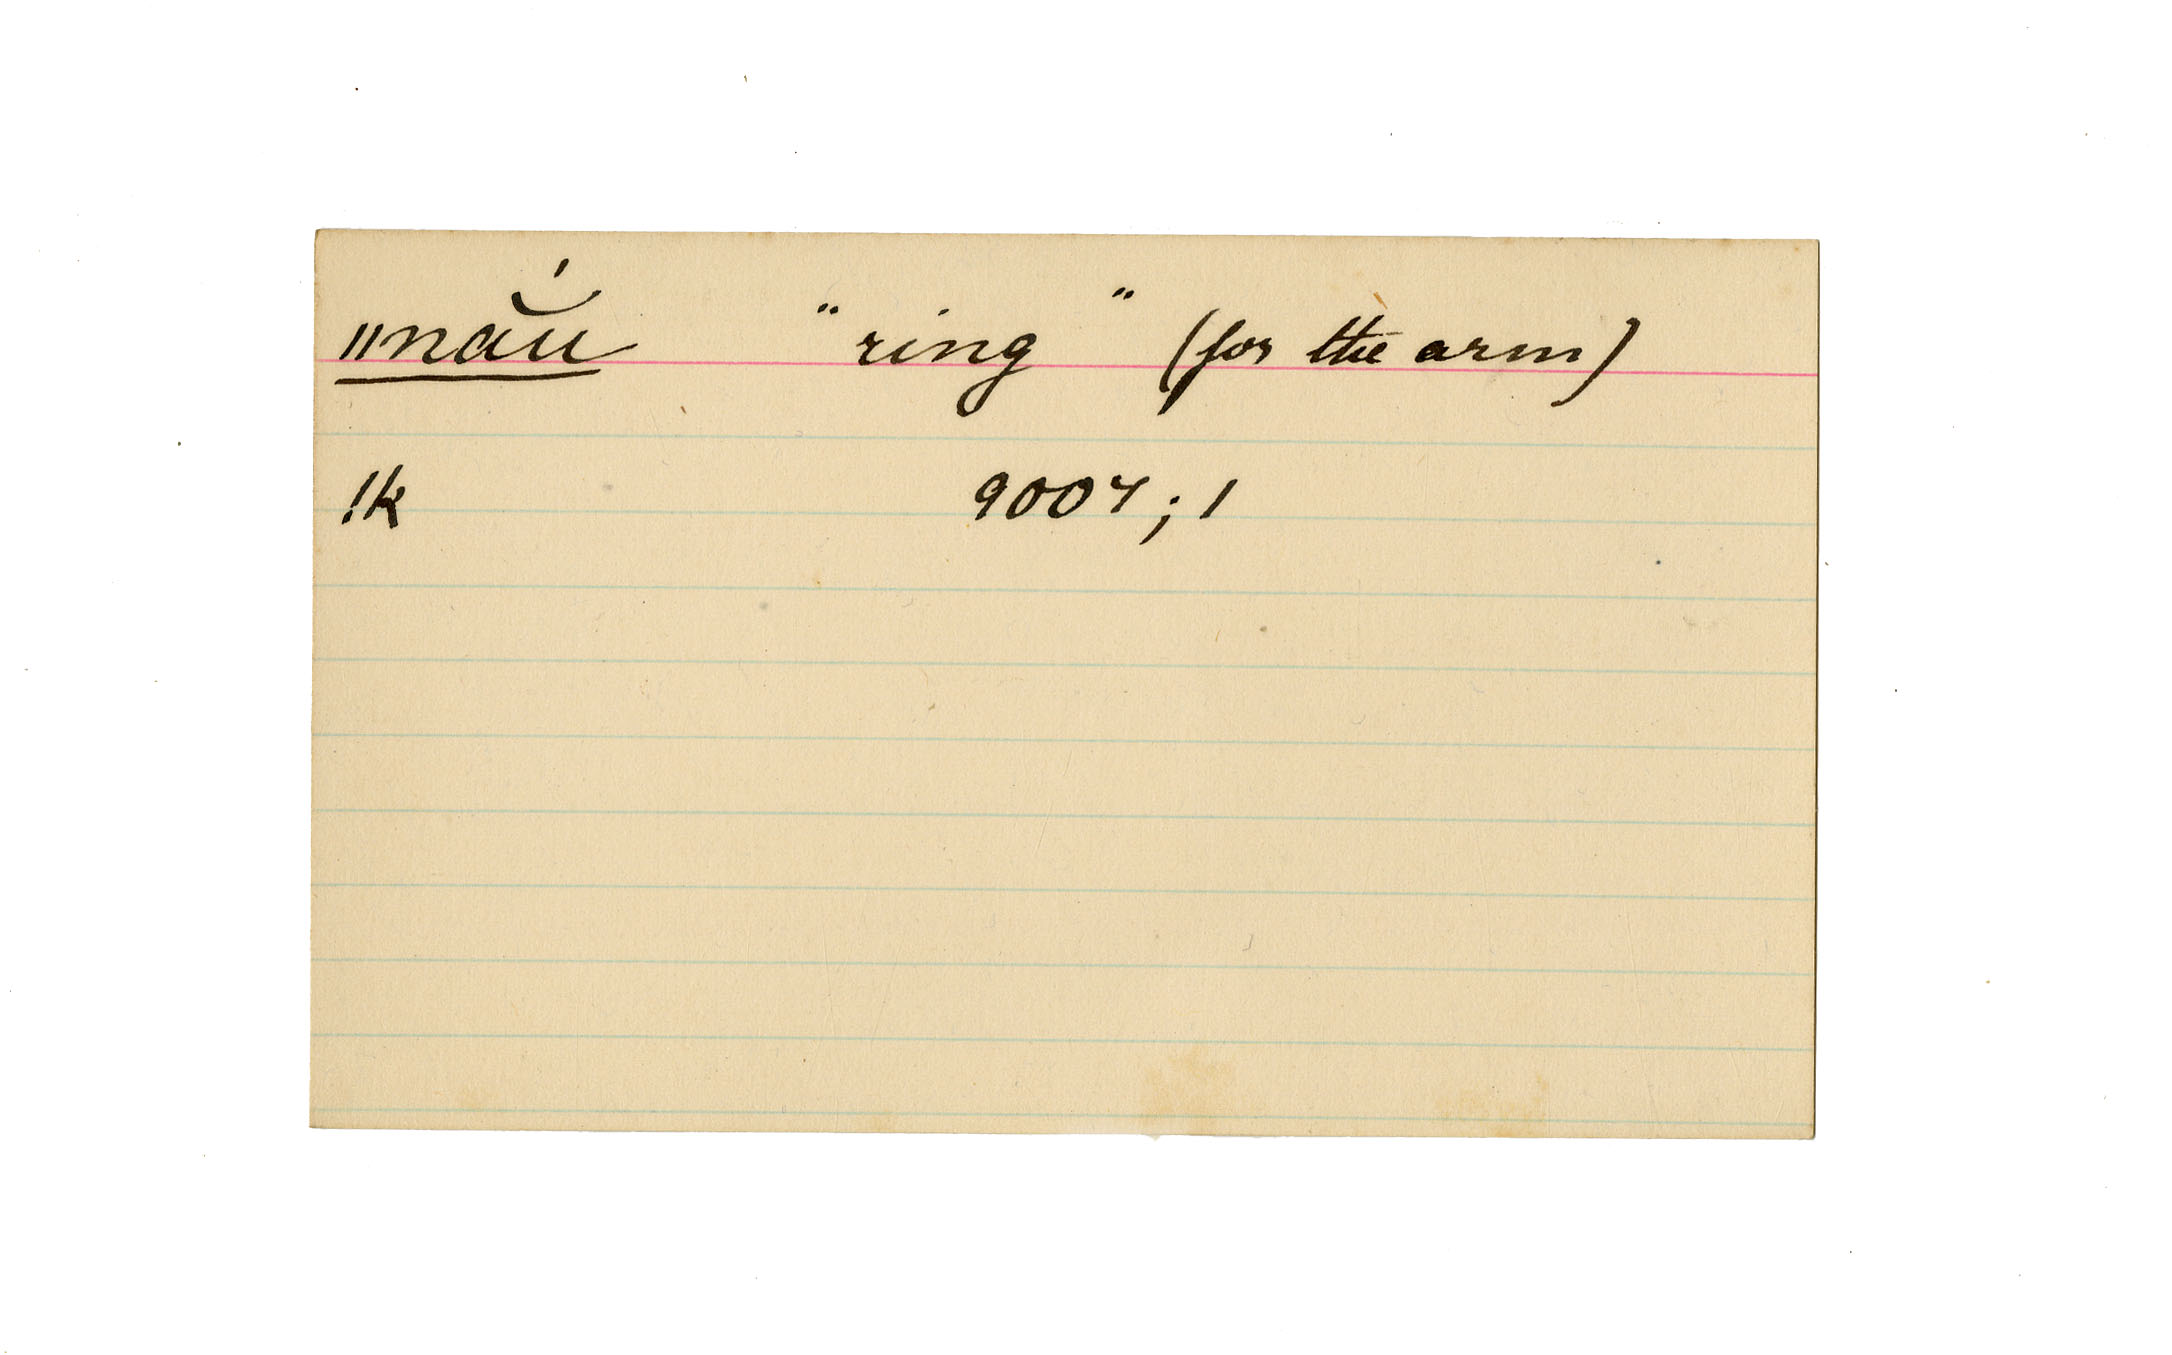 ǁnău̍ "ring" (for the arm)
!k 9007; 1